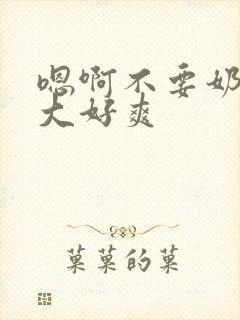 嗯啊不要奶
大好爽
菓菓的菓